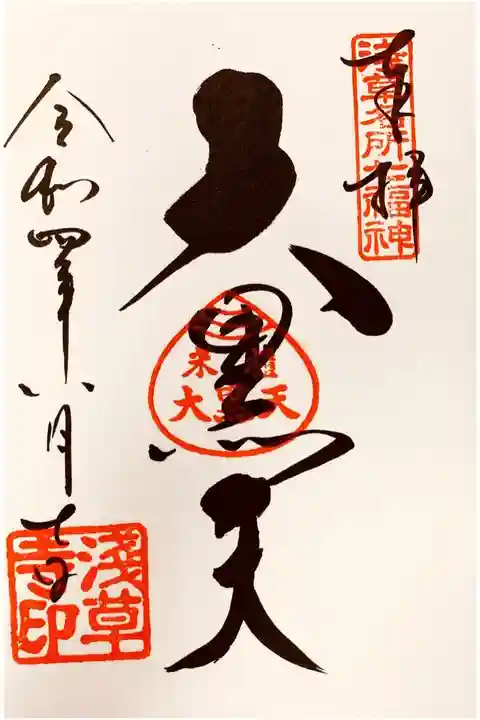 奉拝
浅草名所七福神
大黒天
米櫃
大黒天
令和四年八月吉日
浅草
寺印